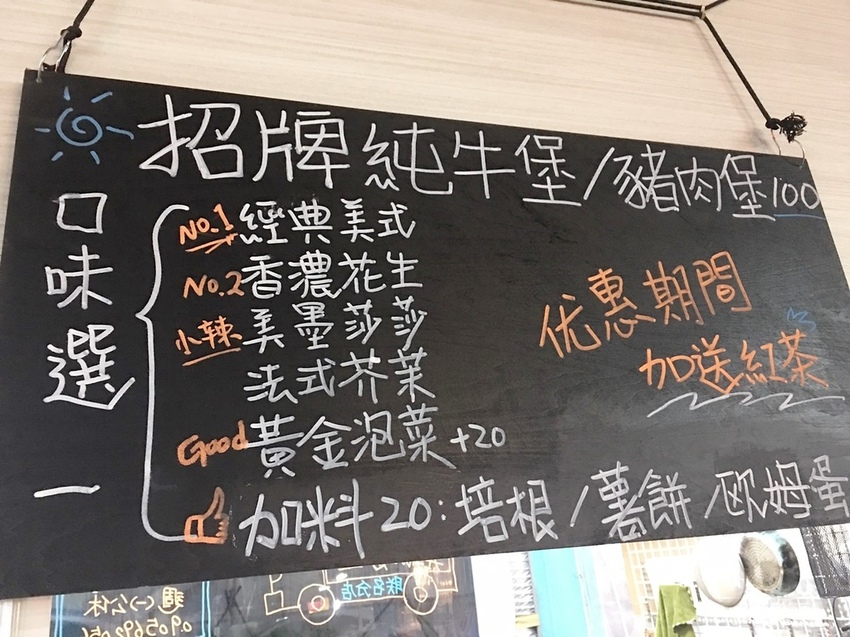 招牌純牛堡/豬肉堡100
口味選一
No.1 經典美式
No.2 香濃花生
小辣 美墨莎莎
法式芥茉
Good 黃金泡菜+20
加料20:培根/薯餅/歐姆蛋
优惠期間
加送紅茶
週(一)公休
聯名分店